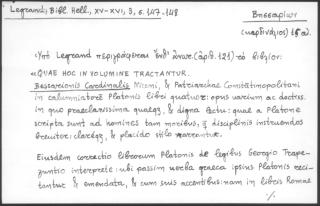 Legrand, Bibl. Hell., XV-XVI, 3, σ. 147-148.
Βησσαρίων
(καρδινάλιος)
Ὑπὸ Legrand περιγράφεται (ἀριθ. 121) τὸ βιβλίον:
«QUAE HOC IN VOLUMINE TRACTANTUR.
Bessarionis Cardinalis Niceni, & Patriarchae Constātinopolitani
in calumniatorē Platonis libri quatuor: opus varium ac doctiss.
in quo praeclarissima quaeq;, & digna lectu: quae a Platone
scripta sunt ad homines tam moribus, q̄ disciplinis instruendos
breuiter: clareq;, & placido stilo narrantur.
Eiusdem correctio librorum Platonis de legibus Georgio Trape-
zuntio interprete: ubi passim uerba graeca ipsius Platonis reci-
tantur & emendata, & cum suis accentibus: nam in libris Romae